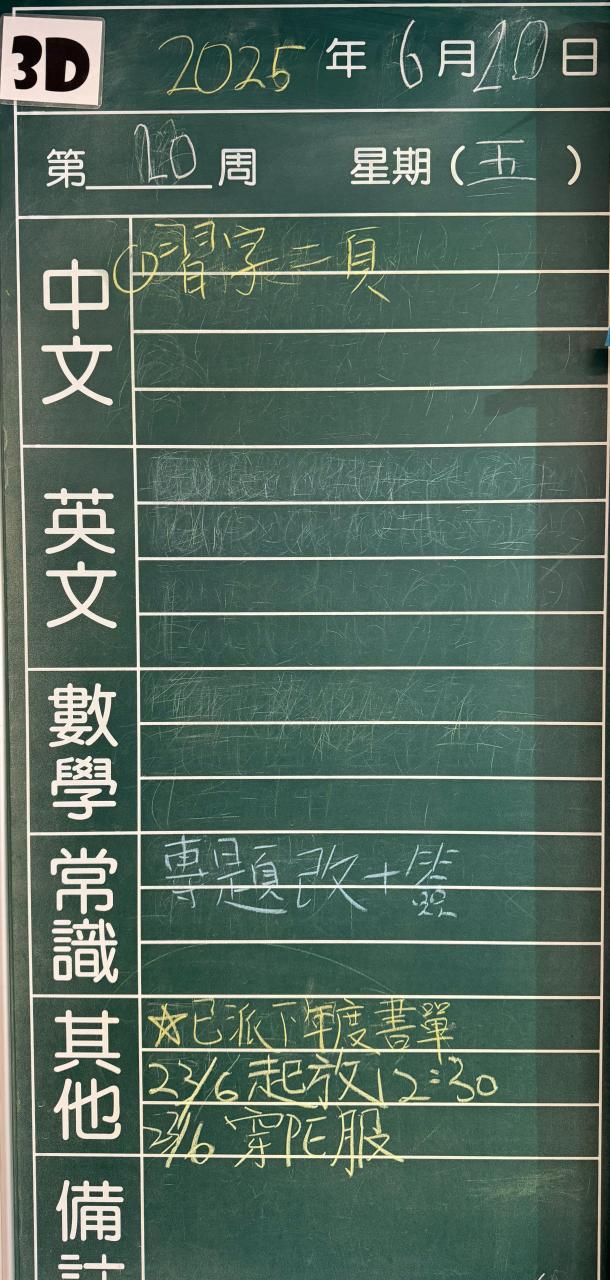 3D
2025年6月20日
第20周 星期(五)
中文
①習字二頁
英文
數學
常識
專題改+簽
其他
☆已派下年度書單
23/6起放12:30
23/6穿PE服
備註